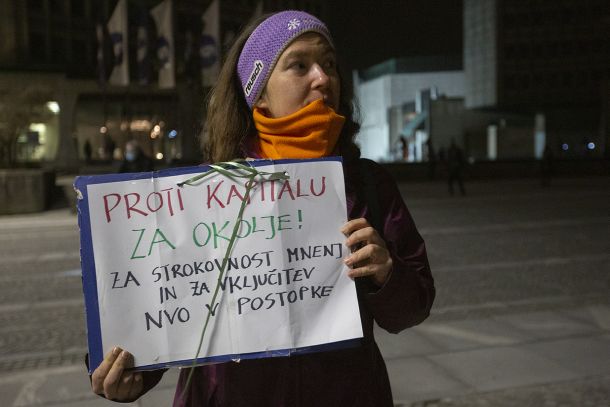 PROTI KAPITALU
ZA OKOLJE!
ZA STROKOVNOST MNENJ
IN ZA VKLJUČITEV
NVO V POSTOPKE